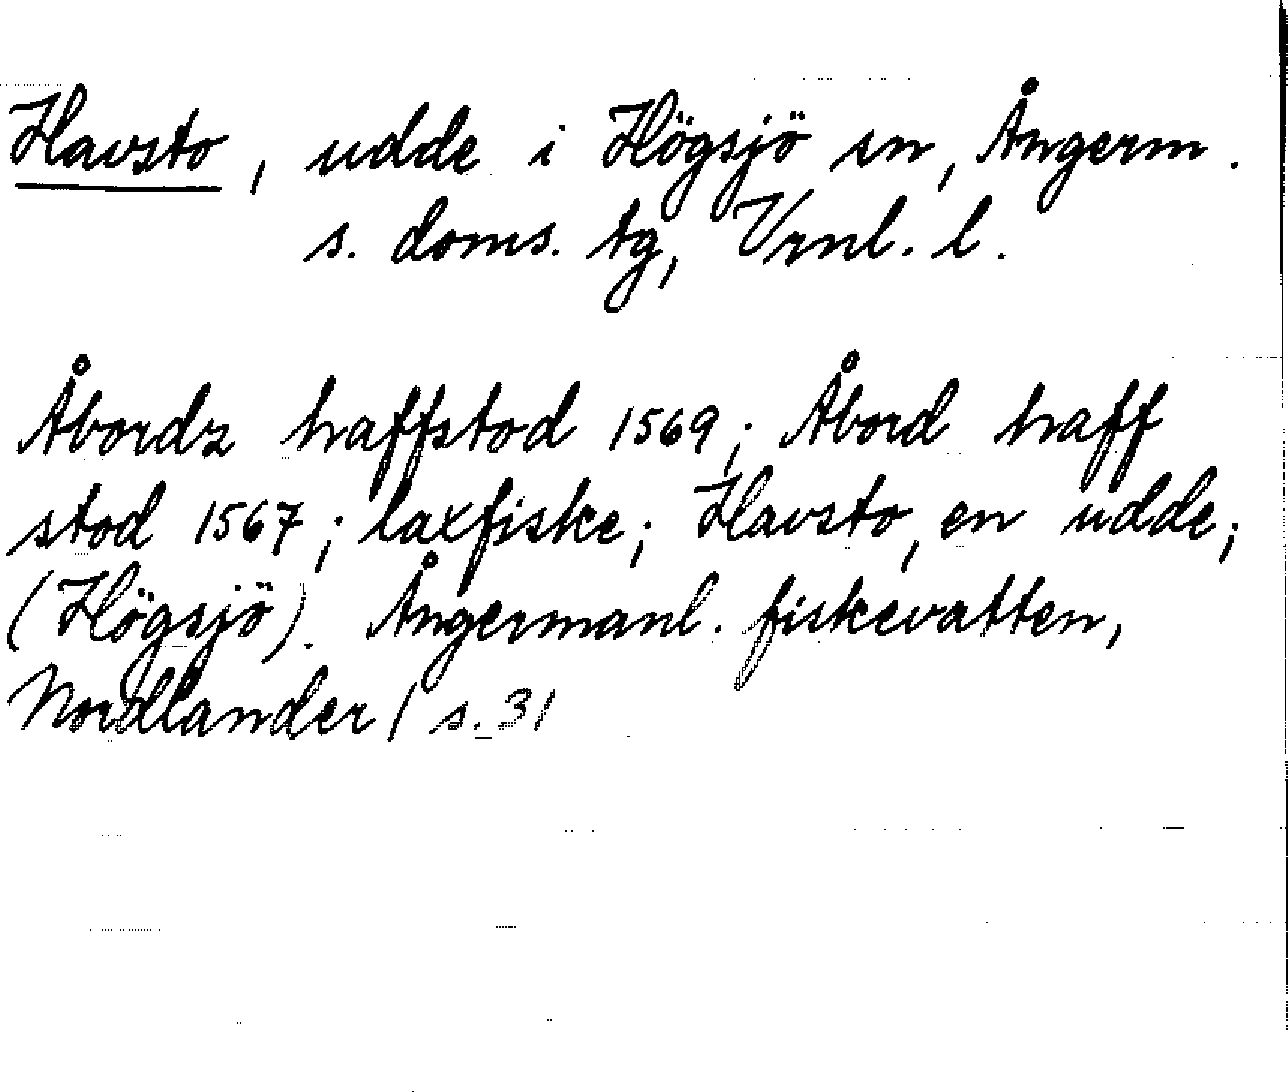 Havsto, udde i Högsjö sn, Ångerm.
s. doms. tg, Vrnl. l.
Åbordz haffstod 1569; Åbord haff
stod 1567; laxfiske; Havsto, en udde;
(Högsjö). Ångermanl. fiskevatten,
Nordlander / s. 31